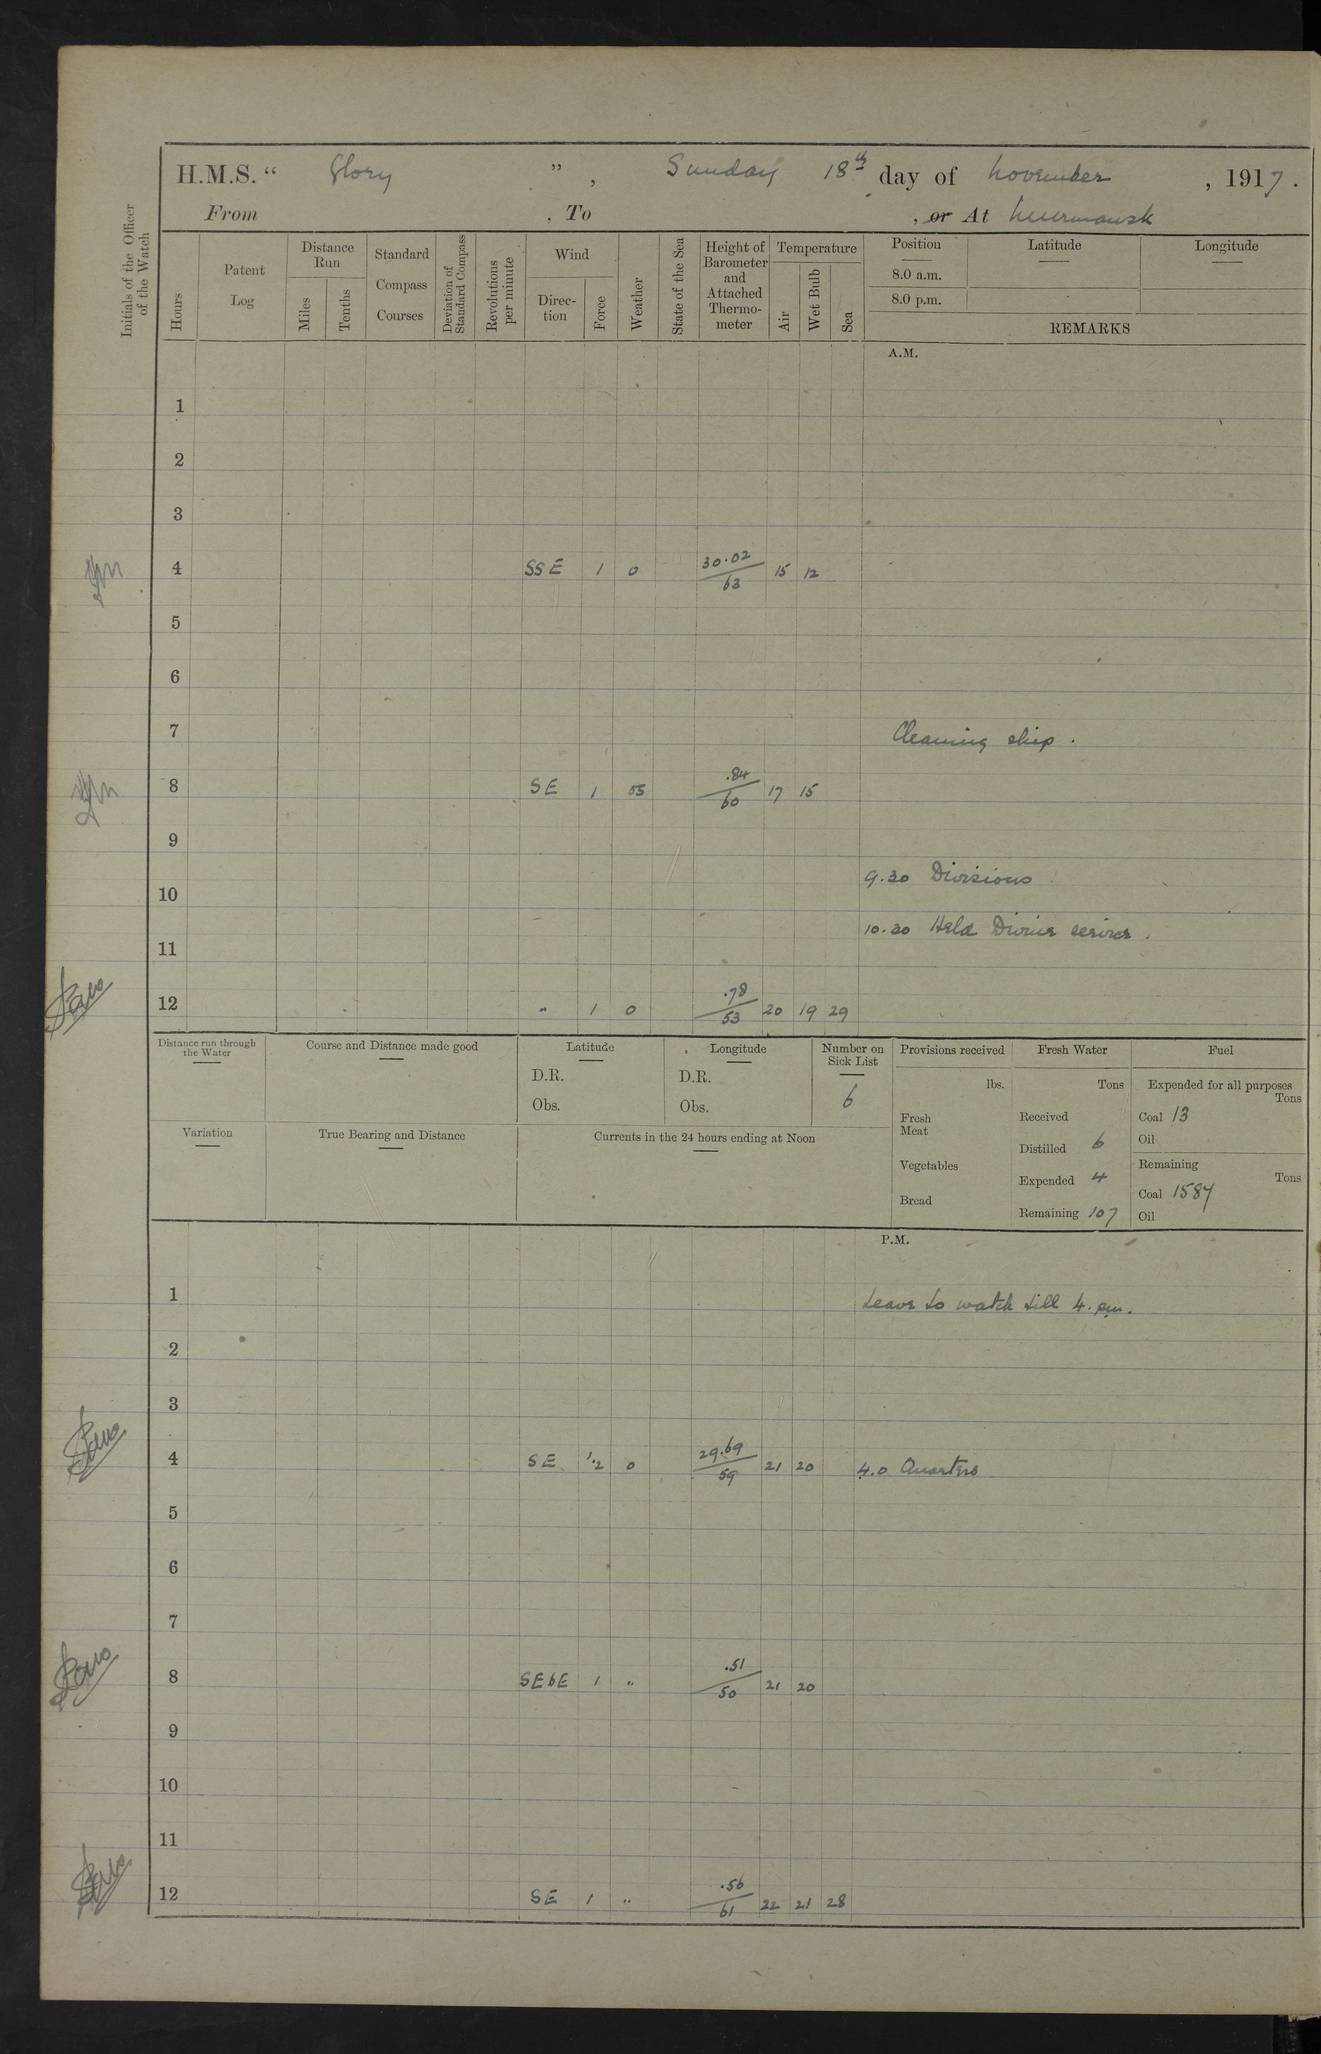 H.M.S. “ Glory ” , Sunday 18th day of November , 1917.
From , To , or At Murmansk
Initials of the Officer of the Watch
Hours
Patent Log
Distance Run
Miles
Tenths
Standard Compass Courses
Deviation of Standard Compass
Revolutions per minute
Wind
Direction
Force
Weather
State of the Sea
Height of Barometer and Attached Thermometer
Temperature
Air
Wet Bulb
Sea
Position Latitude Longitude
8.0 a.m.
8.0 p.m.
REMARKS
A.M.
1
2
3
4 SSE 1 o 30.02/63 15 12
5
6
7 Cleaning ship.
8 SE 1 os .84/60 17 15
9
9.30 Divisions
10
10.30 Held Divine service.
11
12 " 1 o .78/53 20 19 29
Distance run through the Water
Course and Distance made good
Latitude
D.R.
Obs.
Longitude
D.R.
Obs.
Number on Sick List
6
Variation
True Bearing and Distance
Currents in the 24 hours ending at Noon
Provisions received
lbs.
Fresh Meat
Vegetables
Bread
Fresh Water
Tons
Received
Distilled 6
Expended 4
Remaining 107
Fuel
Expended for all purposes
Tons
Coal 13
Oil
Remaining
Tons
Coal 1584
Oil
P.M.
1 Leave to watch till 4.pm.
2
3
4 SE 1.2 o 29.69/59 21 20 4.0 Quarters
5
6
7
8 SEbE 1 " .51/50 21 20
9
10
11
12 SE 1 " .56/61 22 21 28